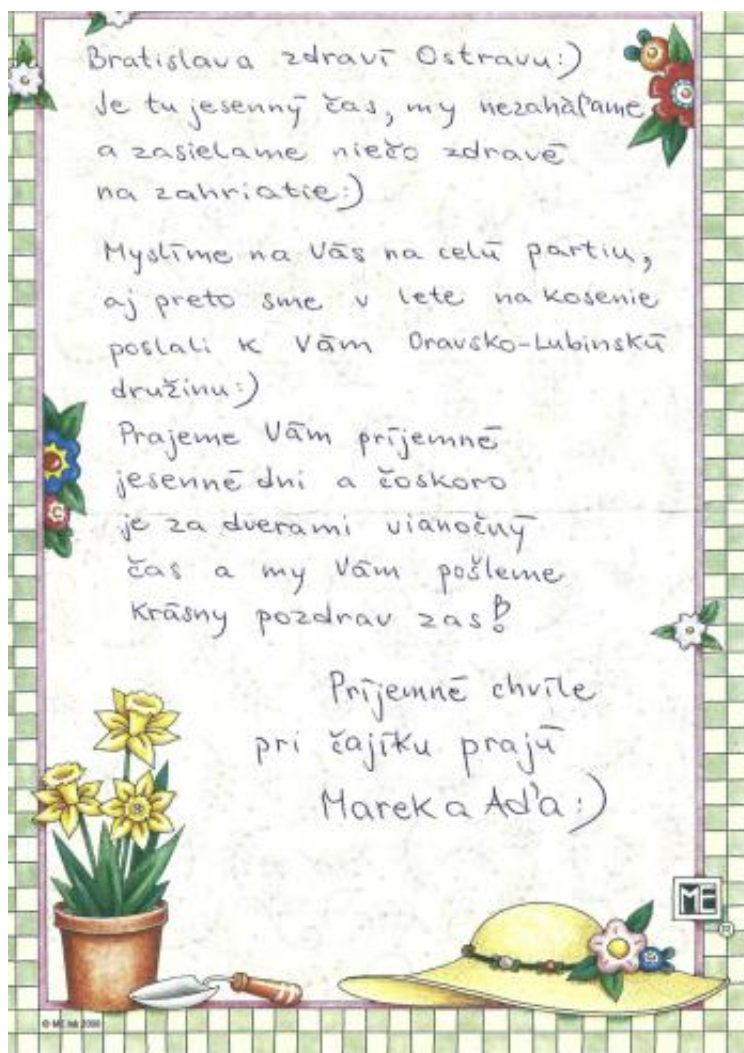 Bratislava zdraví Ostravu:)
Je tu jesenný čas, my nezaháľame
a zasielame niečo zdravé
na zahriatie:)
Myslíme na Vás na celú partiu,
aj preto sme v lete na kosenie
poslali k Vám Oravsko-Lubinskú
družinu:)
Prajeme Vám príjemné
jesenné dni a čoskoro
je za dverami vianočný
čas a my Vám pošleme
krásny pozdrav zas!
Príjemné chvíle
pri čajíku prajú
Marek a Aďa:)
ME